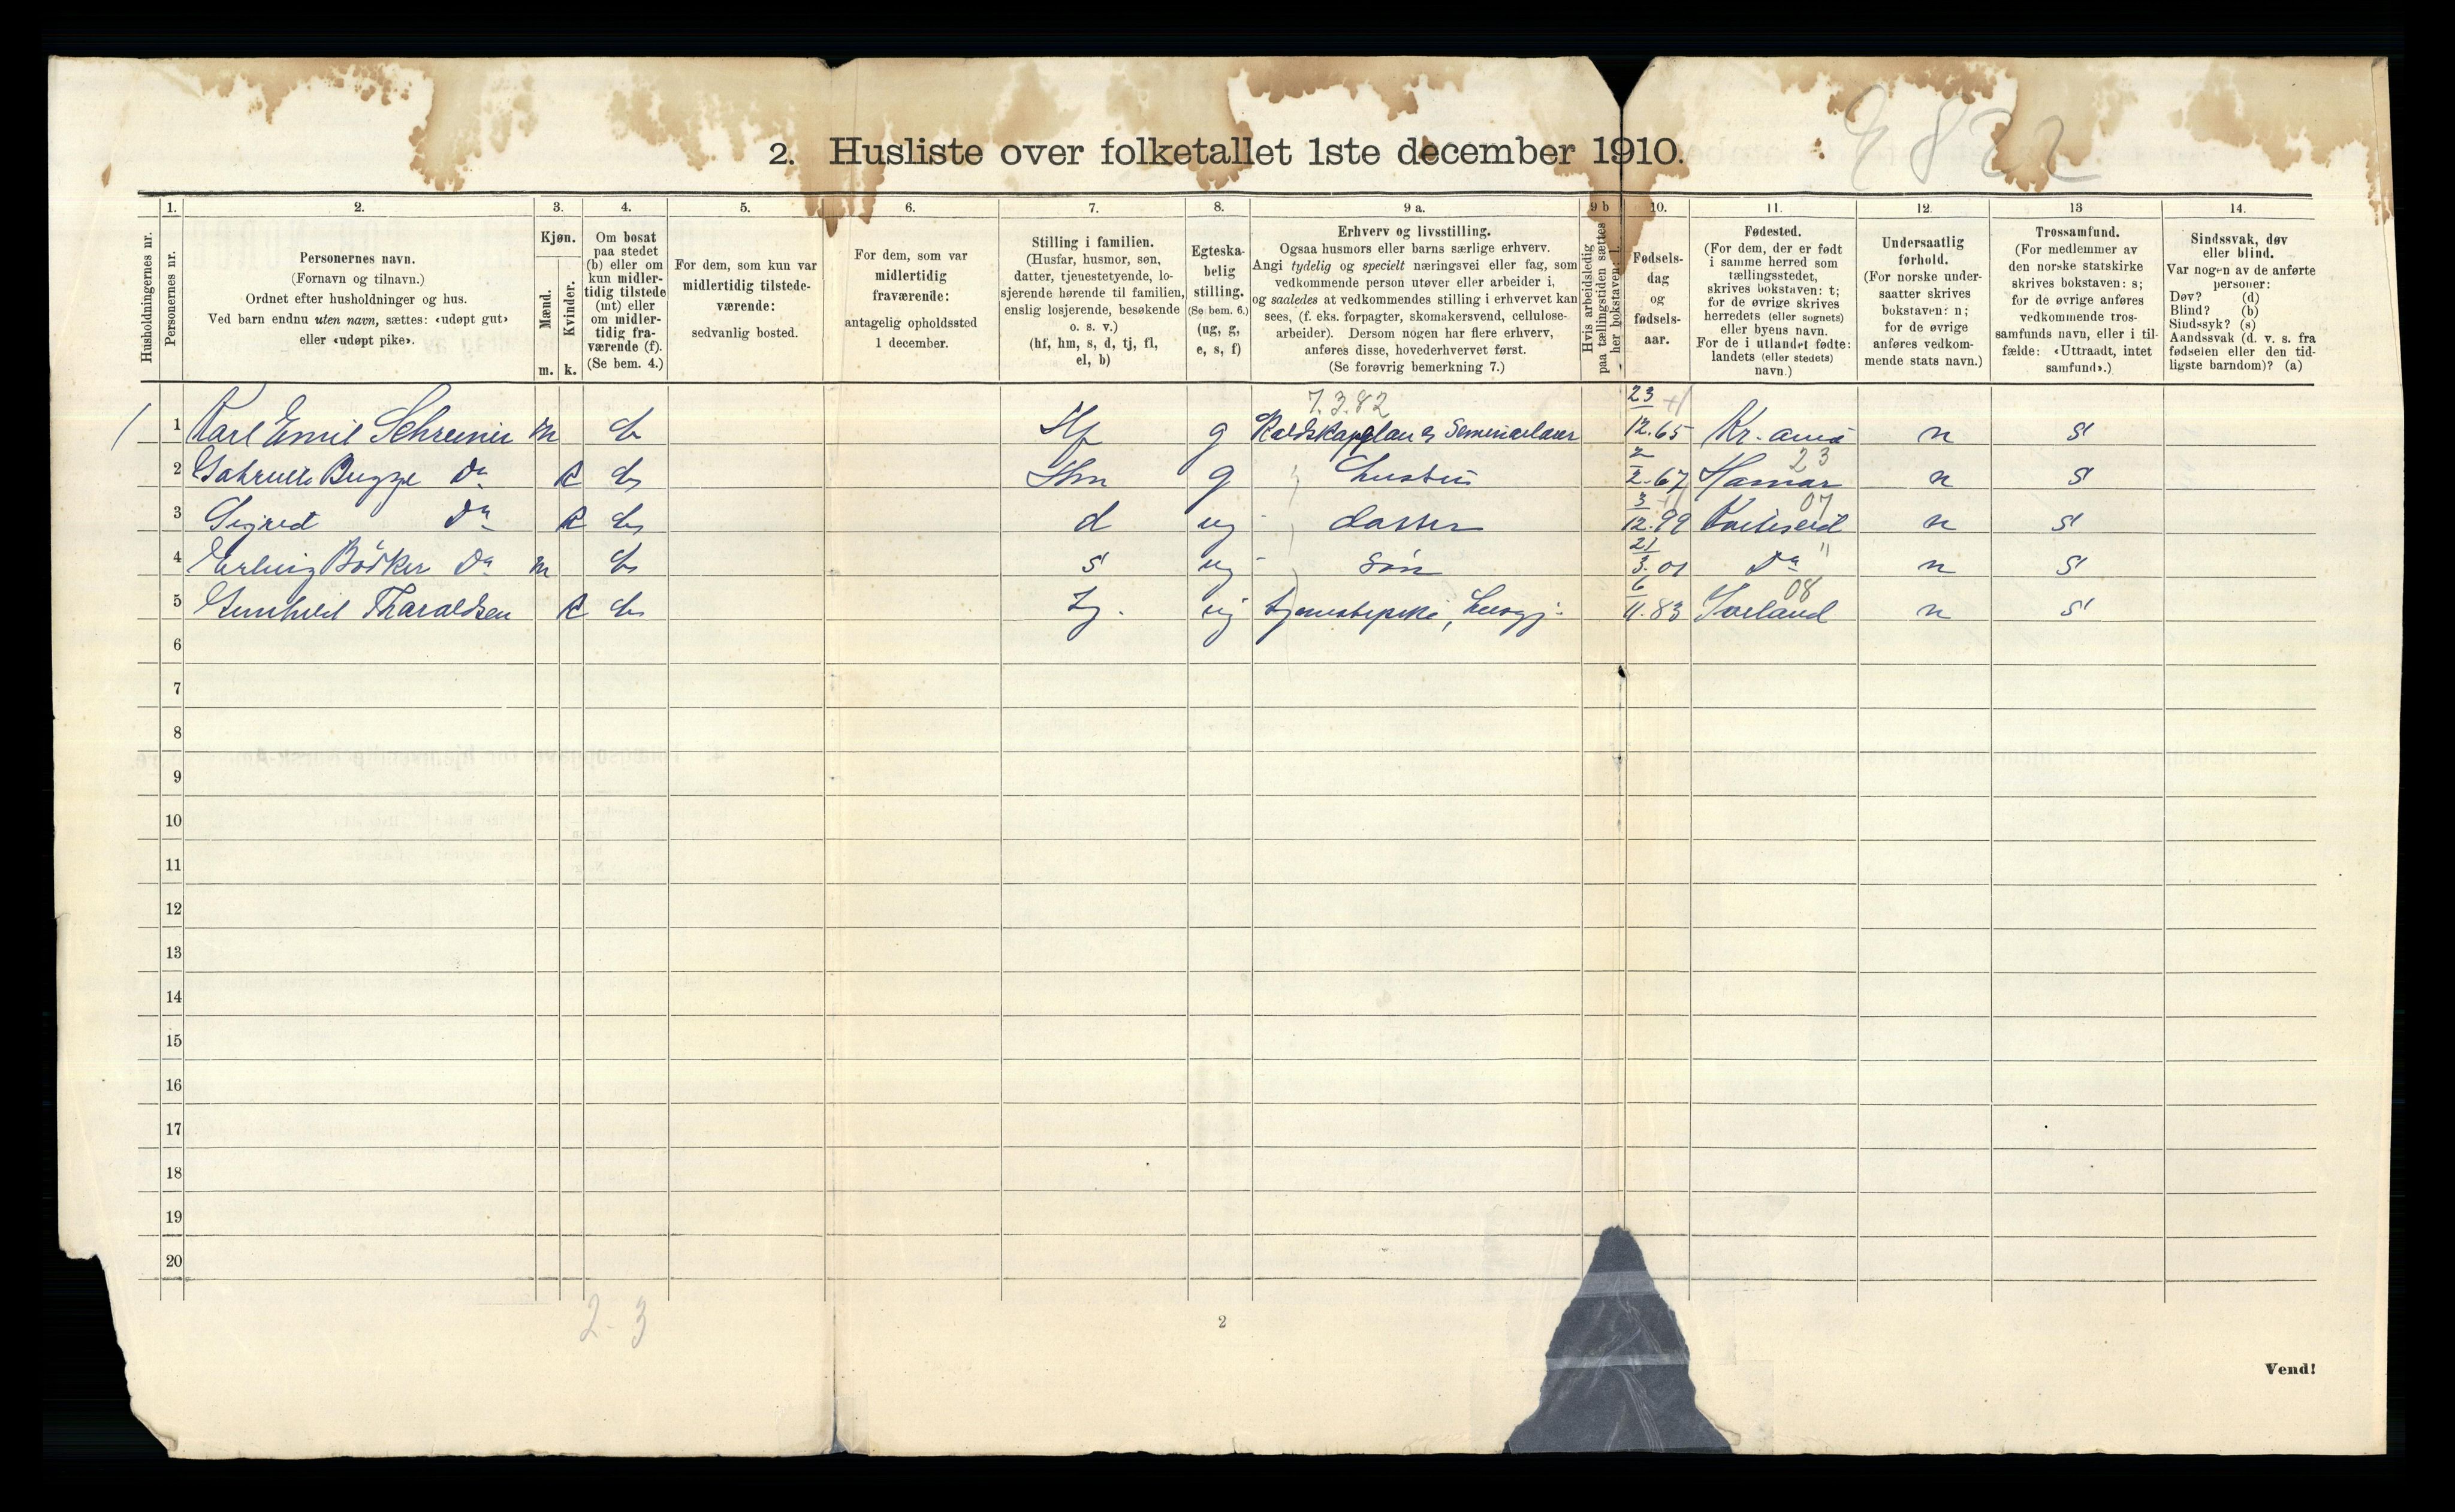 9822
2. Husliste over folketallet 1ste december 1910.
Husholdningernes nr.
1.
Personernes nr.
2.
Personernes navn.
(Fornavn og tilnavn.)
Ordnet efter husholdninger og hus.
Ved barn endnu uten navn, sættes: «udøpt gut»
eller «udøpt pike».
3.
Kjøn.
Mænd.
Kvinder.
m. k.
4.
Om bosat
paa stedet
(b) eller om
kun midler-
tidig tilstede
(mt) eller
om midler-
tidig fra-
værende (f).
(Se bem. 4.)
5.
For dem, som kun var
midlertidig tilstede-
værende:
sedvanlig bosted.
6.
For dem, som var
midlertidig
fraværende:
antagelig opholdssted
1 december.
7.
Stilling i familien.
(Husfar, husmor, søn,
datter, tjenestetyende, lo-
sjerende hørende til familien,
enslig losjerende, besøkende
o. s. v.)
(hf, hm, s, d, tj, fl,
el, b)
8.
Egteska-
belig
stilling.
(Se bem. 6.)
(ug, g,
e, s, f)
9 a.
Erhverv og livsstilling.
Ogsaa husmors eller barns særlige erhverv.
Angi tydelig og specielt næringsvei eller fag, som
vedkommende person utøver eller arbeider i,
og saaledes at vedkommendes stilling i erhvervet kan
sees, (f. eks. forpagter, skomakersvend, cellulose-
arbeider). Dersom nogen har flere erhverv,
anføres disse, hovederhvervet først.
(Se forøvrig bemerkning 7.)
9 b
Hvis arbeidsledig
paa tællingstiden sættes
her bokstaven: l.
10.
Fødsels-
dag
og
fødsels-
aar.
11.
Fødested.
(For dem, der er født
i samme herred som
tællingsstedet,
skrives bokstaven: t;
for de øvrige skrives
herredets (eller sognets)
eller byens navn.
For de i utlandet fødte:
landets (eller stedets)
navn.)
12.
Undersaatlig
forhold.
(For norske under-
saatter skrives
bokstaven: n;
for de øvrige
anføres vedkom-
mende stats navn.)
13
Trossamfund.
(For medlemmer av
den norske statskirke
skrives bokstaven: s;
for de øvrige anføres
vedkommende tros-
samfunds navn, eller i til-
fælde: «Uttraadt, intet
samfund».)
14.
Sindssvak, døv
eller blind.
Var nogen av de anførte
personer:
Døv? (d)
Blind? (b)
Sindssyk? (s)
Aandssvak (d. v. s. fra
fødselen eller den tid-
ligste barndom)? (a)
7.3.82
1 Karl Emil Schreiner m b Hf g Kaldskapellan og Seminarlærer 23/12.65 Kr.ania n s
23
2 Bugge Do k b Hm g hustru 2/2.67 Hamar n s
07
3 Sigrid Do k b d ug datter 3/12.99 Kviteseid n s
4 Erling Bödker Do m b s ug søn 21/3.01 Do " n s
08
5 Gunhild Tharaldsen k b tj. ug tjenestepike, husgj. 6/11.83 n s
6
7
8
9
10
11
12
13
14
15
16
17
18
19
20
2-3
2
Vend!